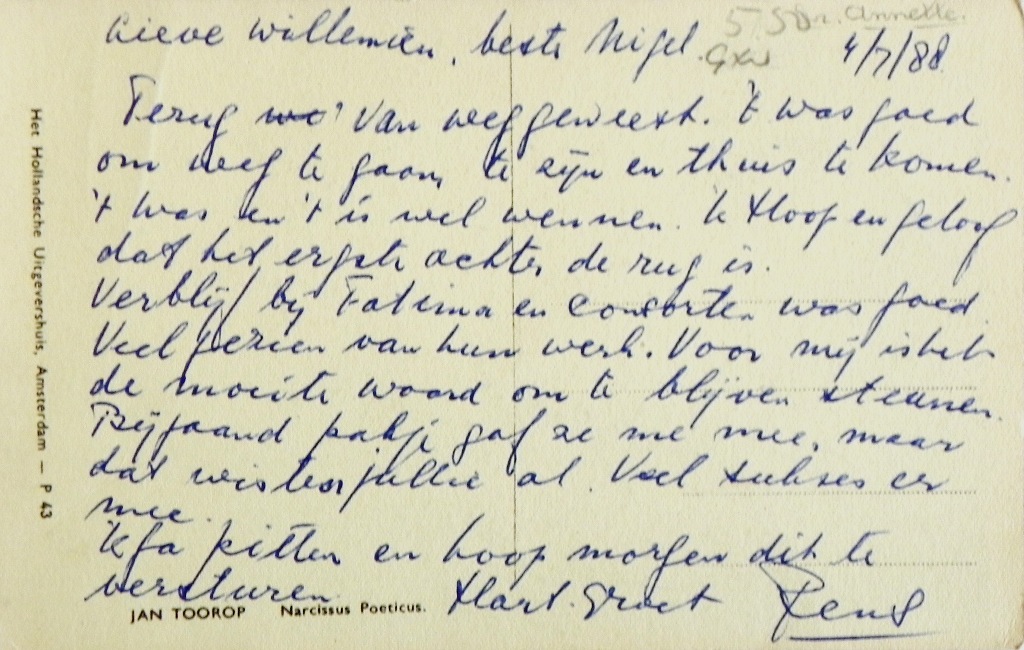 5 Sr. Annette.
Lieve Willemien, beste Nigel. 4/7/88
Terug van weggeweest. 't was goed
om weg te gaan, te zijn en thuis te komen.
't was en 't is wel wennen. 'k Hoop en geloof
dat het ergste achter de rug is.
Verblijf bij Fatima en Consorten was goed.
Veel gezien van hun werk. Voor mij is het
de moeite waard om te blijven steunen.
Bijgaand pakje gaf ze me mee, maar
dat wisten jullie al. Veel sukses er
mee.
Ik ga pitten en hoop morgen dit te
versturen. Hart. Groet
JAN TOOROP Narcissus Poeticus.
Het Hollandsche Uitgevershuis, Amsterdam — P 43